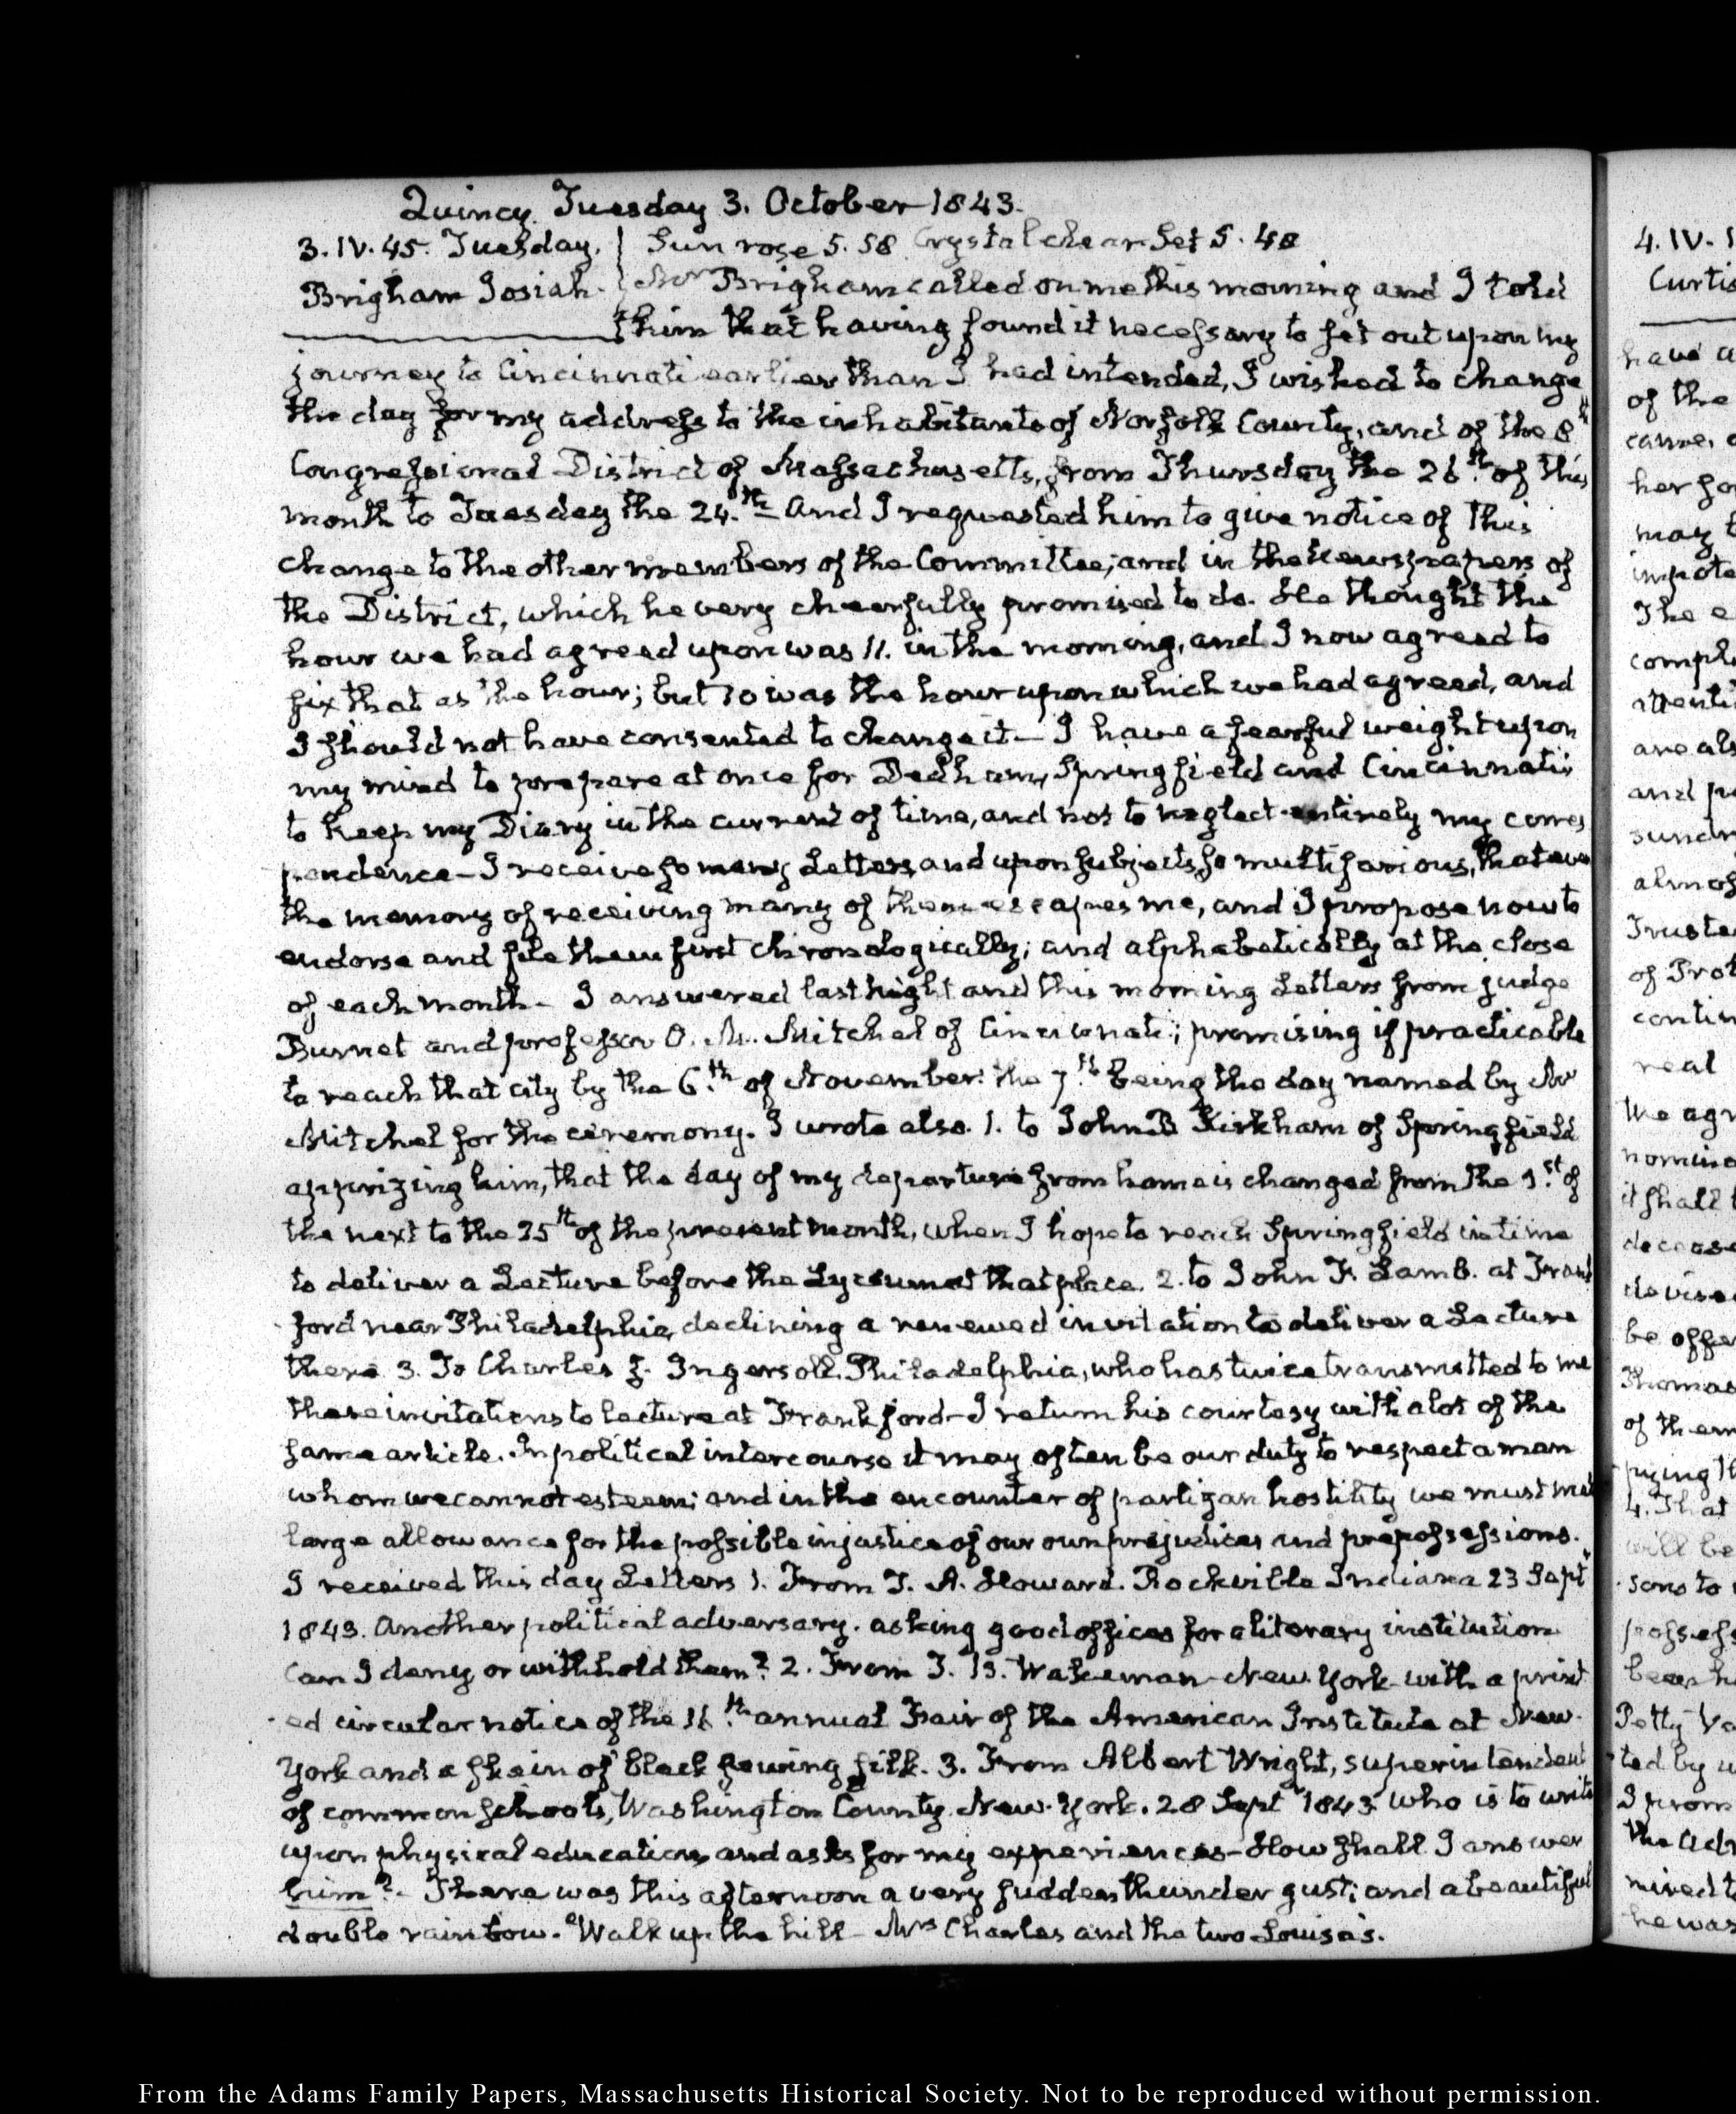 Quincy Tuesday 3. October 1843.
3. IV. 45. Tuesday. Sun rose 5. 58 Crystal clear Set 5. 48
Brigham Josiah. Mr Brigham called on me this morning and I told
him that having found it necessary to set out upon my
journey to Cincinnati earlier than I had intended, I wished to change
the day for my address to the inhabitants of Norfolk County, and of the 8th
Congressional District of Massachusetts, from Thursday the 26th of this
month to Tuesday the 24th and I requested him to give notice of this
change to the other members of the Committee; and in the Newspapers of
the District, which he very cheerfully promised to do. He thought the
hour we had agreed upon was 11. in the morning, and I now agreed to
fix that as the hour; but 10 was the hour upon which we had agreed, and
I should not have consented to change it — I have a fearful weight upon
my mind to prepare at once for Dedham, Springfield and Cincinnati;
to keep my Diary in the current of time, and not to neglect entirely my corres
pondence — I receive so many Letters, and upon subjects so multifarious, that even
the memory of receiving many of them escapes me, and I propose now to
endorse and file them first chronologically; and alphabetically at the close
of each month — I answered last night and this morning Letters from judge
Burnet and professor O. M. Mitchel of Cincinnati; promising if practicable
to reach that city by the 6th of November: the 7th being the day named by Mr
Mitchel for the ceremony. I wrote also. 1. to John B Kirkham of Springfield
apprizing him, that the day of my departure from home is changed from the 1st of
the next to the 25th of the present month, when I hope to reach Springfield in time
to deliver a Lecture before the Lyceum at that place. 2. to John F. Lamb. at Frank
ford near Philadelphia, declining a renewed invitation to deliver a Lecture
there 3. To Charles J. Ingersoll. Philadelphia, who has twice transmitted to me
these invitations to lecture at Frankford — I return his courtesy with a lot of the
same article. In political intercourse it may often be our duty to respect a man
whom we cannot esteem; and in the encounter of partizan hostility we must make
large allowance for the possible injustice of our own prejudices and prepossessions.
I received this day Letters 1. From T. A. Howard. Rockville Indiana 23 Sept
1843. Another political adversary. asking good offices for a literary institution
Can I deny or withhold them? 2. From T. B. Wakeman — New York — with a print
ed circular notice of the 16th annual Fair of the American Institute at New
York and a skein of black sewing silk. 3. From Albert Wright, superintendent
of common schools, Washington County. New York. 28 Sept 1843 who is to write
upon physical education and asks for my experiences — How shall I answer
him? — There was this afternoon a very sudden thunder gust; and a beautiful
double rainbow. Walk up the hill — Mrs Charles and the two Louisa's.
4. IV.
Curtis
have
of the
came,
her
may
The
are also
and
of Prot
contin
real
We agr
nomina
it shall
be offer
Thomas
of them
4. That
will be
sons to
Petty
ted by
the
he was
From the Adams Family Papers, Massachusetts Historical Society. Not to be reproduced without permission.